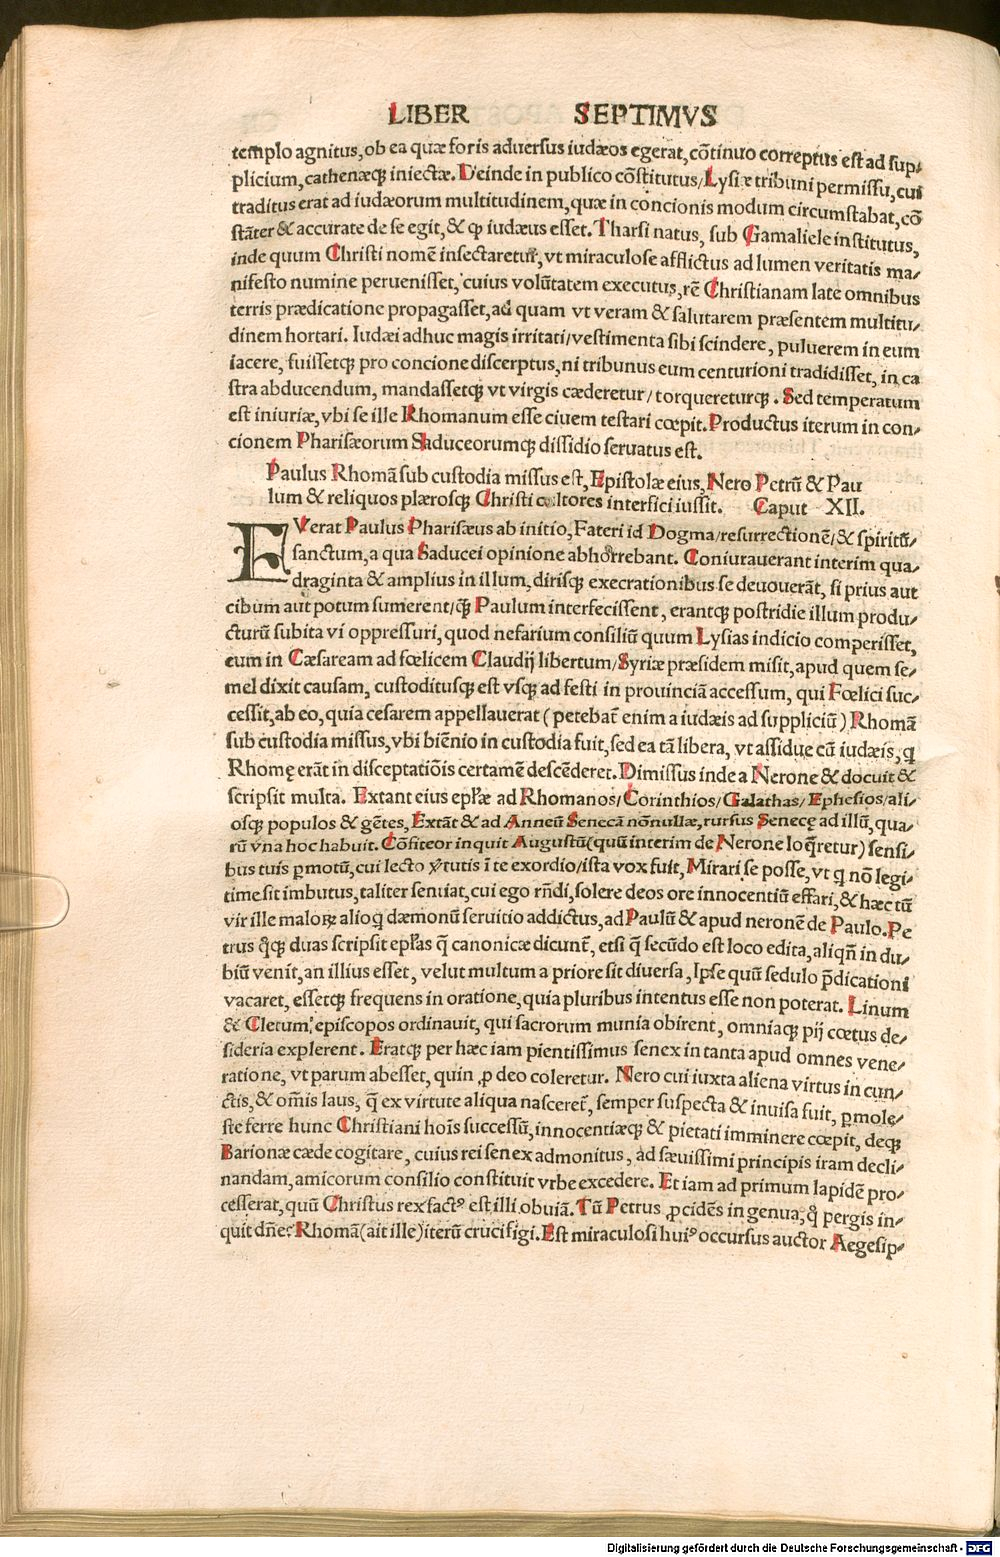 LIBER SEPTIMVS
templo agnitus, ob ea quæ foris aduersus iudæos egerat, cōtinuo correptus est ad sup-
plicium, cathenæq; iniectæ. Deinde in publico cōstitutus/Lysiæ tribuni permissu, cui
traditus erat ad iudæorum multitudinem, quæ in concionis modum circumstabat, cō
stāter & accurate de se egit, & ꝙ iudæus esset. Tharsi natus, sub Gamaliele institutus,
inde quum Christi nomē insectaretur, vt miraculose afflictus ad lumen veritatis ma-
nifesto numine peruenisset, cuius volūtatem executus, rē Christianam late omnibus
terris prædicatione propagasset, ad quam vt veram & salutarem præsentem multitu-
dinem hortari. Iudæi adhuc magis irritati/vestimenta sibi scindere, puluerem in eum
iacere, fuissetq; pro concione discerptus, ni tribunus eum centurioni tradidisset, in ca
stra abducendum, mandassetq; vt virgis cæderetur/torquereturq;. Sed temperatum
est iniuriæ, vbi se ille Rhomanum esse ciuem testari cœpit. Productus iterum in con-
cionem Pharisæorum Saduceorumq; dissidio seruatus est.
Paulus Rhomā sub custodia missus est, Epistolæ eius, Nero Petrū & Pau
lum & reliquos plærosq; Christi cultores interfici iussit. Caput XII.
EVerat Paulus Pharisæus ab initio, Fateri id Dogma/resurrectionē/& spiritū-
sanctum, a qua Saducei opinione abhorrebant. Coniurauerant interim qua-
draginta & amplius in illum, dirisq; execrationibus se deuouerāt, si prius aut
cibum aut potum sumerent/q̄ Paulum interfecissent, erantq; postridie illum produ-
cturū subita vi oppressuri, quod nefarium consiliū quum Lysias indicio comperisset,
eum in Cæsaream ad fœlicem Claudij libertum/Syriæ præsidem misit, apud quem se-
mel dixit causam, custoditusq; est vsq; ad festi in prouinciā accessum, qui Fœlici suc-
cessit, ab eo, quia cesarem appellauerat (petebāt enim a iudæis ad suppliciū) Rhomā
sub custodia missus, vbi biēnio in custodia fuit, sed ea tā libera, vt assidue cū iudæis, q
Rhomę erāt in disceptatiōis certamē descēderet. Dimissus inde a Nerone & docuit &
scripsit multa. Extant eius epłæ ad Rhomanos/Corinthios/Galathas/Ephesios/ali-
osq; populos & gētes, Extāt & ad Anneū Senecā nōnullæ, rursus Senecę ad illū, qua-
rū vna hoc habuit. Cōfiteor inquit Augustū (quū interim de Nerone loq̄retur) sensi-
bus tuis ꝑmotū, cui lecto v̄tutis ī te exordio/ista vox fuit, Mirari se posse, vt q nō legi-
time sit imbutus, taliter sentiat, cui ego rn̄di, solere deos ore innocentiū effari, & hæc tū
vir ille maloꝝ alioq dæmonū seruitio addictus, ad Paulū & apud neronē de Paulo. Pe
trus q̄q; duas scripsit epłas q̄ canonicæ dicunt̄, etsi q̄ secūdo est loco edita, aliqn̄ in du-
biū venit, an illius esset, velut multum a priore sit diuersa, Ipse quū sedulo p̄dicationi
vacaret, essetq; frequens in oratione, quia pluribus intentus esse non poterat. Linum
& Cletum, episcopos ordinauit, qui sacrorum munia obirent, omniaq; pij cœtus de-
sideria explerent. Eratq; per hæc iam pientissimus senex in tanta apud omnes vene-
ratione, vt parum abesset, quin ꝓ deo coleretur. Nero cui iuxta aliena virtus in cun-
ctis, & om̄is laus, q̄ ex virtute aliqua nasceret̄, semper suspecta & inuisa fuit, ꝑmole-
ste ferre hunc Christiani hoīs successū, innocentiæq; & pietati imminere cœpit, deq;
Barionæ cæde cogitare, cuius rei senex admonitus, ad sæuissimi principis iram decli-
nandam, amicorum consilio constituit vrbe excedere. Et iam ad primum lapidē pro-
cesserat, quū Christus rex factꝰ est illi obuiā. Tū Petrus ꝓcidēs in genua, q̊ pergis in-
quit dn̄e? Rhomā (ait ille) iterū crucifigi. Est miraculosi huiꝰ occursus auctor Aegesip-
Digitalisierung gefördert durch die Deutsche Forschungsgemeinschaft - DFG